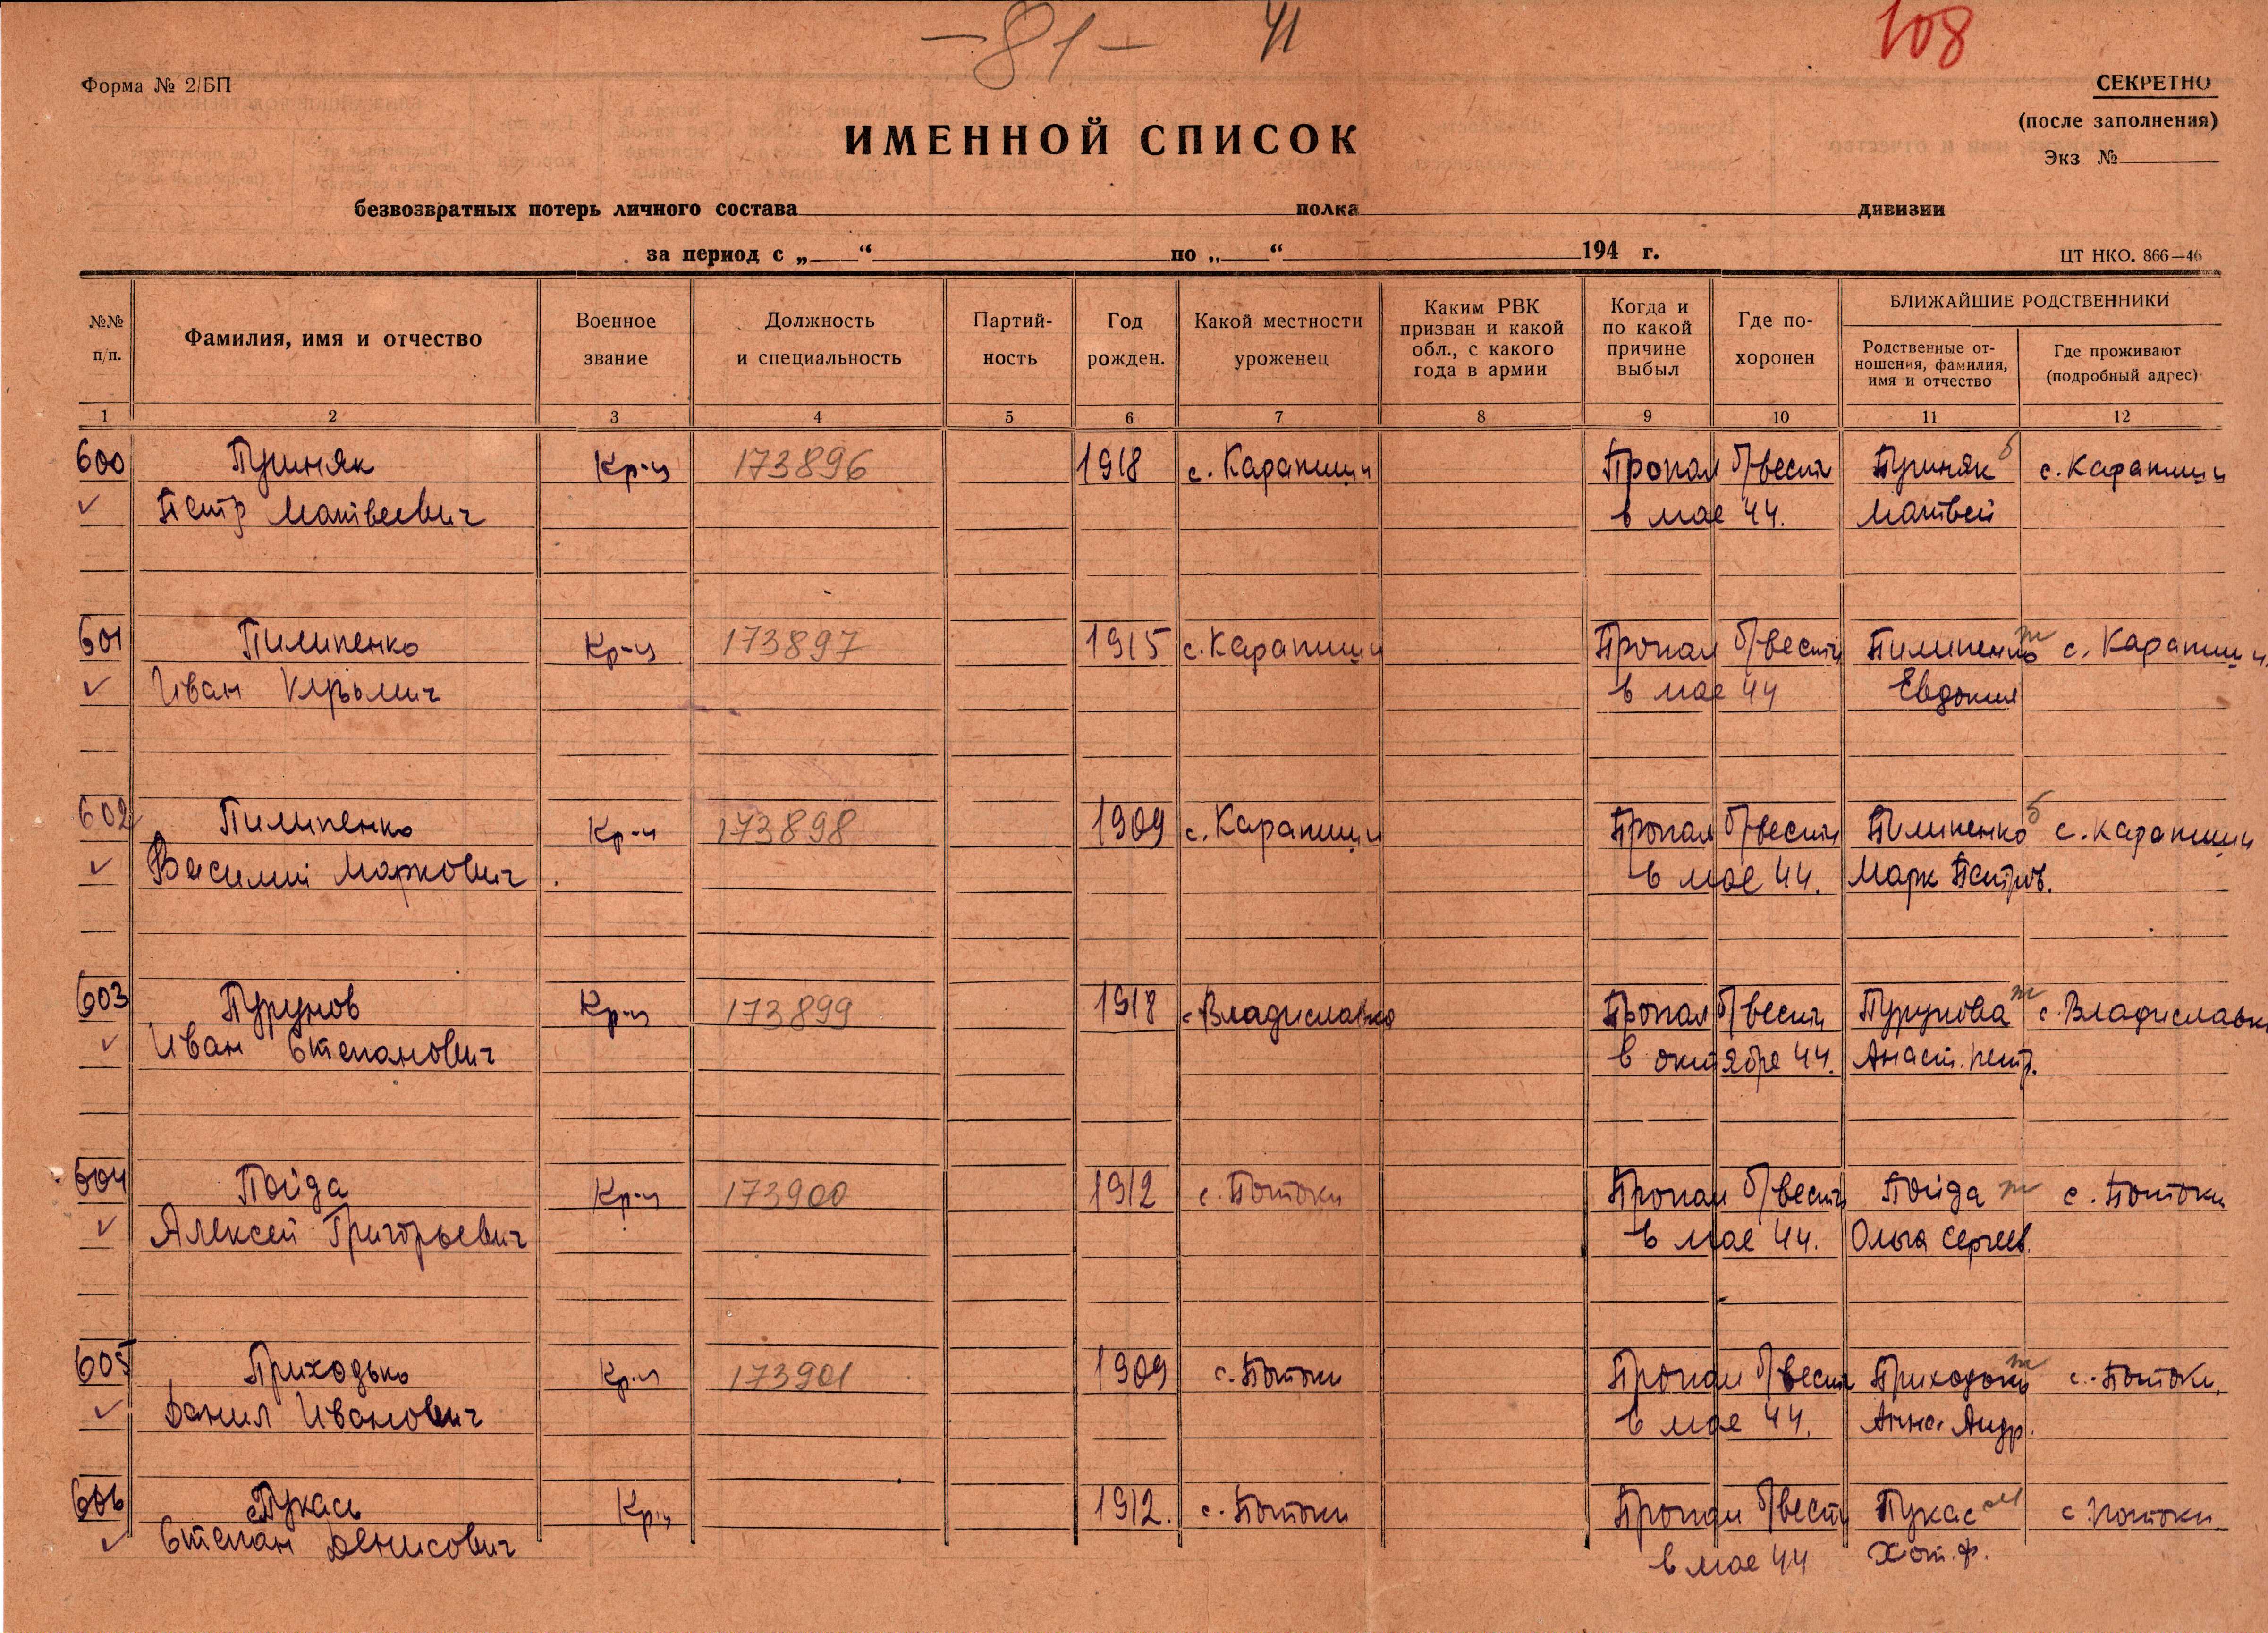 -81- 41 108
Форма № 2/БП
СЕКРЕТНО
(после заполнения)
Экз №
ИМЕННОЙ СПИСОК
безвозвратных потерь личного состава полка дивизии
за период с „ “ по „ “ 194 г.
ЦТ НКО. 866—46
№№ п/п.
Фамилия, имя и отчество
Военное звание
Должность и специальность
Партий-ность
Год рожден.
Какой местности уроженец
Каким РВК призван и какой обл., с какого года в армии
Когда и по какой причине выбыл
Где по-хоронен
БЛИЖАЙШИЕ РОДСТВЕННИКИ
Родственные от-ношения, фамилия, имя и отчество
Где проживают (подробный адрес)
1 2 3 4 5 6 7 8 9 10 11 12
600 Пушняк Кр-ц 173896 1918 с. Карапиши Пропал б/вести Пушняк б с. Карапиши
Петр Матвеевич в мае 44. Матвей
601 Пилипенко Кр-ц 173897 1915 с. Карапиши Пропал б/вести Пилипенко ж с. Карапиши
Иван в мае 44 Евдокия
602 Пилипенко Кр-ц 173898 1909 с. Карапиши Пропал б/вести Пилипенко б с. Карапиши
Василий Маркович в мае 44. Марк Петров.
603 Пурунов Кр-ц 173899 1918 с Владиславка Пропал б/вести Пурунова ж с. Владиславка
Иван Степанович в октябре 44. Анаст. петр.
604 Пойда Кр-ц 173900 1912 с. Потоки Пропал б/вести Пойда ж с. Потоки
Алексей Григорьевич в мае 44. Ольга Сергеев.
605 Приходько Кр-ц 173901 1909 с. Потоки Пропал б/вести Приходько ж с. Потоки.
Данил Иванович в мае 44. Анна Андр.
606 Пукась Кр-ц 1912. с. Потоки Пропал б/вести Пукас м с. Потоки
Степан Денисович в мае 44 Хот. ф.